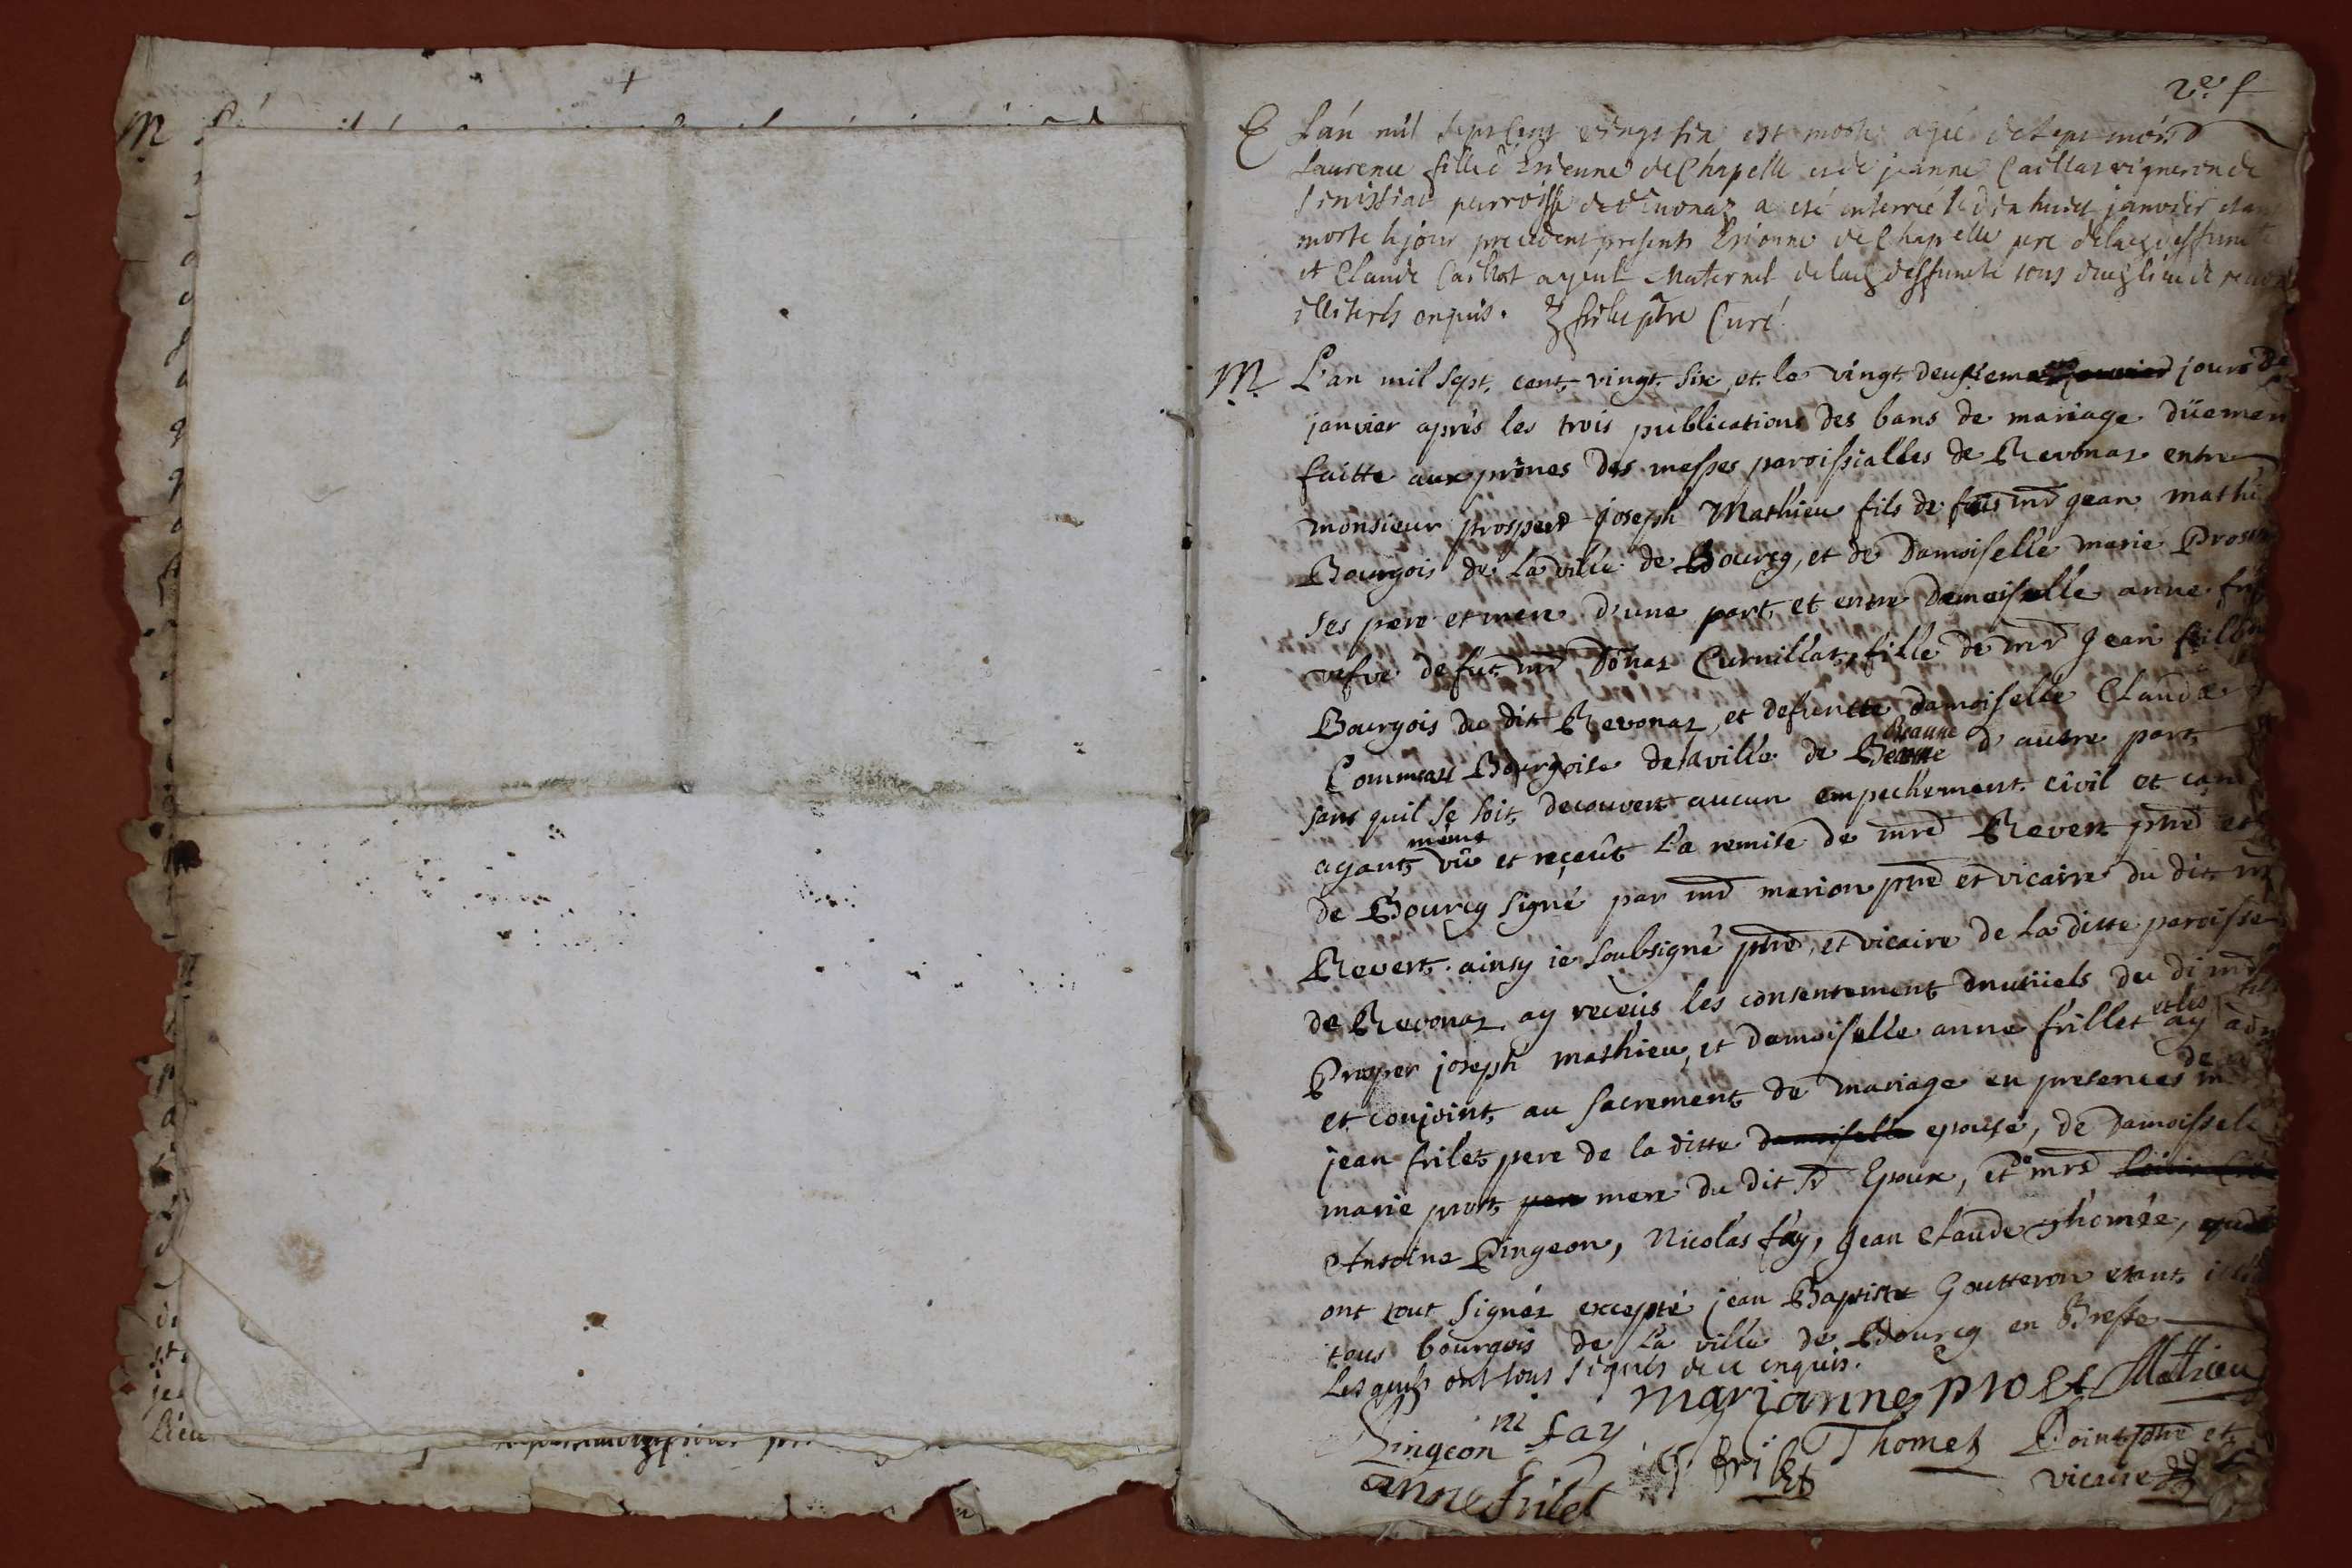 M
2e f
E L'an mil sept cent vingt six est morte agée de sept mois
Laurence fille d'Estienne de Chapelle et de jeanne Caillat vigneron de
Senissiat parroisse de Revonaz a esté enterrée le dix huict janvier etant
morte le jour precedent presents Estienne de Chapelle pere de lad deffuncte
et Claude Caillat ayeul Maternel de lad deffuncte tous dud lieu de
illiterés enquis. frilet ptre Curé
M L'an mil sept cent vingt six et le vingt deusieme jours de
janvier aprés les trois publications des bans de mariage düemen
faitte aux prônes des messes paroissialles de Revonas entre
monsieur prosper joseph Mathieu fils de feu mr jean mathi
Bourgois de la ville de Bourcg, et de Damoiselle marie Prost
ses pere et mere d'une part, et entre Damoiselle anne fril
vefve de fut mr Donas Curnillat, fille de mr jean frillet
Bourgois du dit Revonas, et defuncte damoiselle Claudæ
Bourgoise de la ville de Beaune d'autre part
sans quil se soit decouvert aucun empechement civil et can
ayant même vû et reçeût la remise de mre Revert ptre et
de Bourcg signé par mr marion ptre et vicaire du dit mr
Revert. ainsy ie soubsigné ptre, et vicaire de la ditte paroisse
de Revonas ay receüs les consentement mutüels du di mr
Prosper joseph mathieu, et damoiselle anne frillet et les ay
et conjoint au sacrement de mariage en presences de m
jean frilet pere de la ditte damoiselle epouse, de Damoissele
marie prost mere du dit sr Epoux, et de mrs
Antoine Pingeon, Nicolas fay, jean Claude thomée,
ont tout signés excepté jean Baptiste Goutteron etant
tous bourgois de la ville de Bourcg en Bresse
Lesquels ont tous signés de ce enquis.
marianne prost Mathieu
Pingeon ni fay
J frilet Thomes Pointptre et
vicaire
anne frilet
Lieu